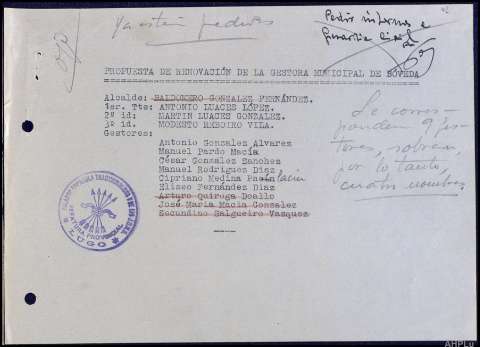 42
Ya están pedidos
Pedir informes a
Guardia Civil
PROPUESTA DE RENOVACIÓN DE LA GESTORA MUNICIPAL DE BÓVEDA
Alcalde: BALDOMERO GONZALEZ FERNÁNDEZ.
1er. Tte: ANTONIO LUACES LÓPEZ.
2º id: MARTIN LUACES GONZALEZ.
3º id. MODESTO REBOIRO VILA.
Gestores:
Antonio Gonzales Alvarez
Manuel Pardo Macía
César González Sanchez
Manuel Rodríguez Diaz
Cipriano Medina
Eliseo Fernández Diaz
Arturo Quiroga Doallo
José María Macia Gonzalez
Secundino Salgueiro Vasquez
Le corres-
ponden 9 ges-
tores, sobran,
por lo tanto,
cuatro nombres
JEFATURA PROVINCIAL
LUGO
AHPLu